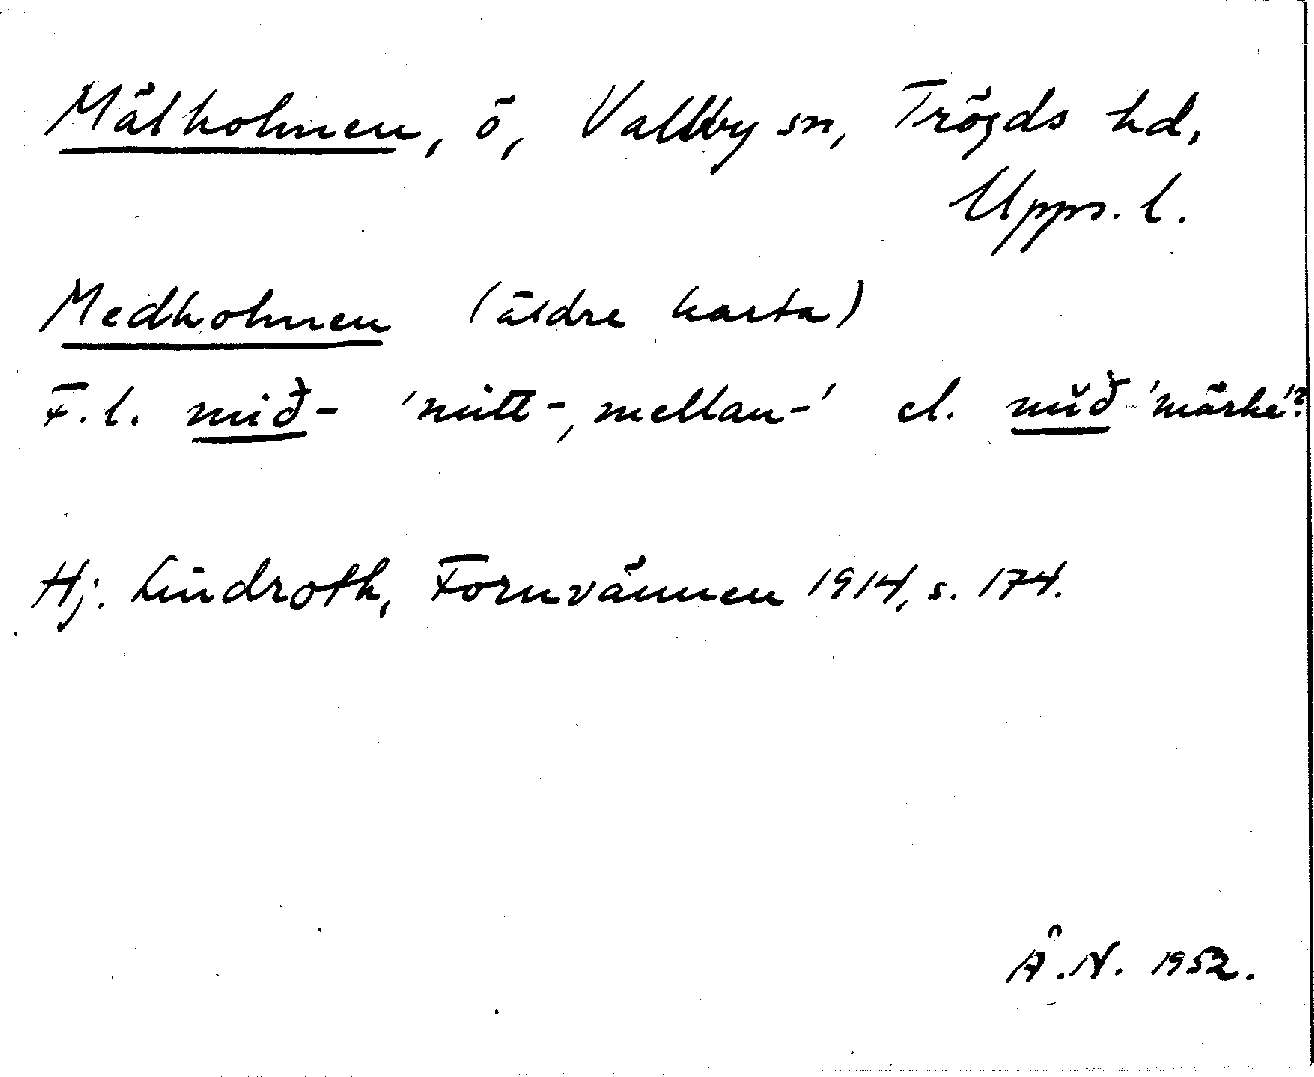 Mälholmen, ö, Vallby sn, Trögds hd,
Upps. l.
Medholmen (äldre karta)
F.l. mið- 'mitt-, mellan-' el. mið 'märke'?
Hj. Lindroth, Fornvännen 1914, s. 174.
Å.N. 1952.